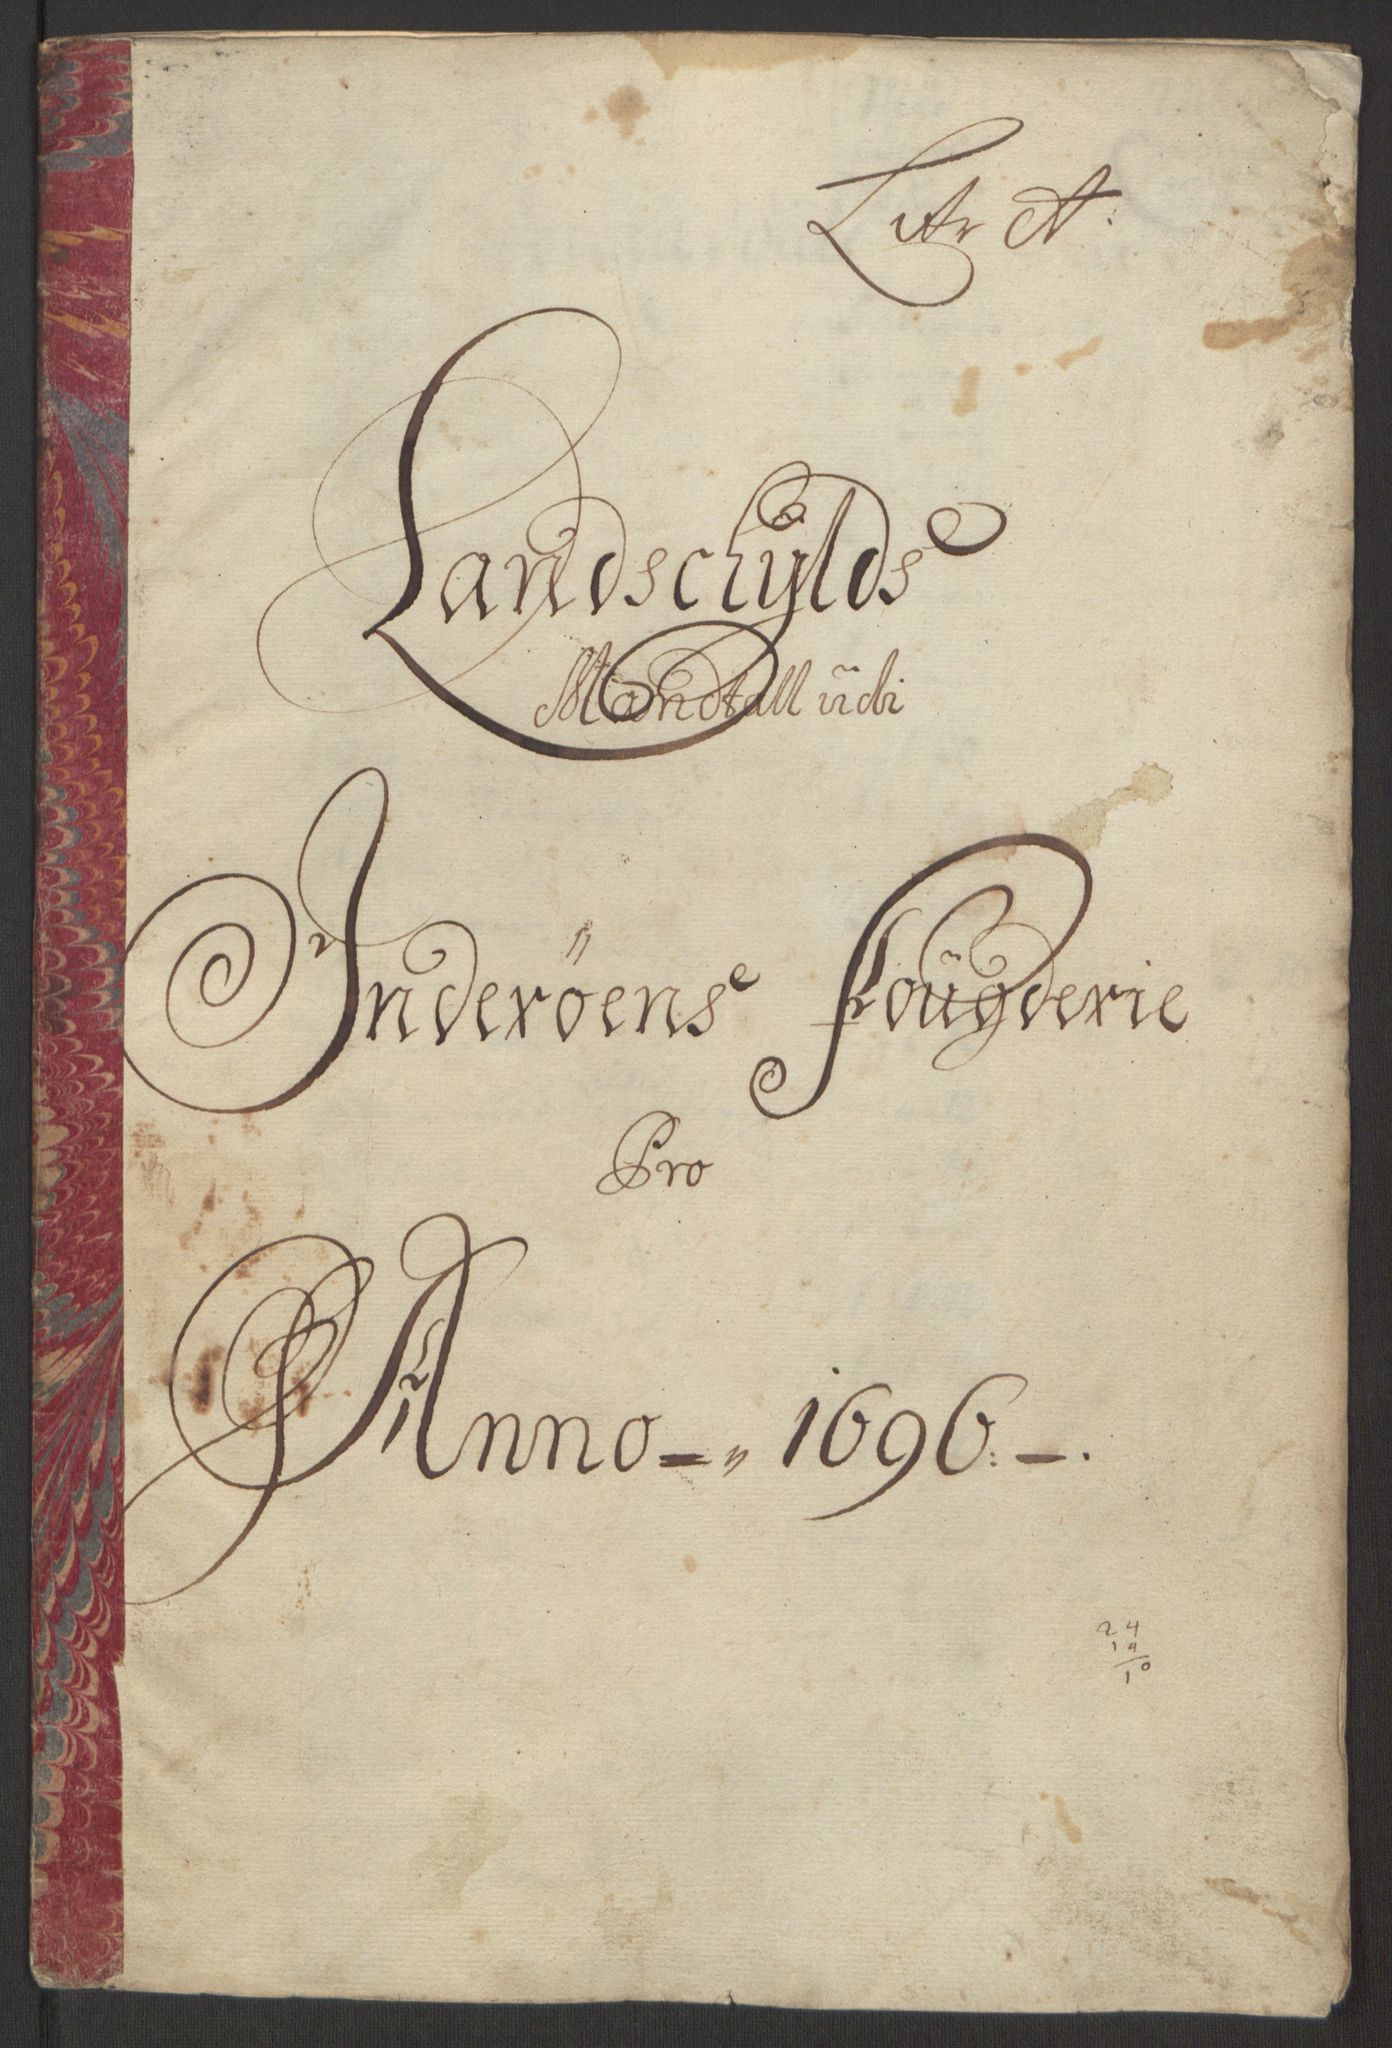 Litr A:
Landschÿlds
Mandtall üdi
Inderöens Fougderie
Pro
Anno 1696.
24
14
10